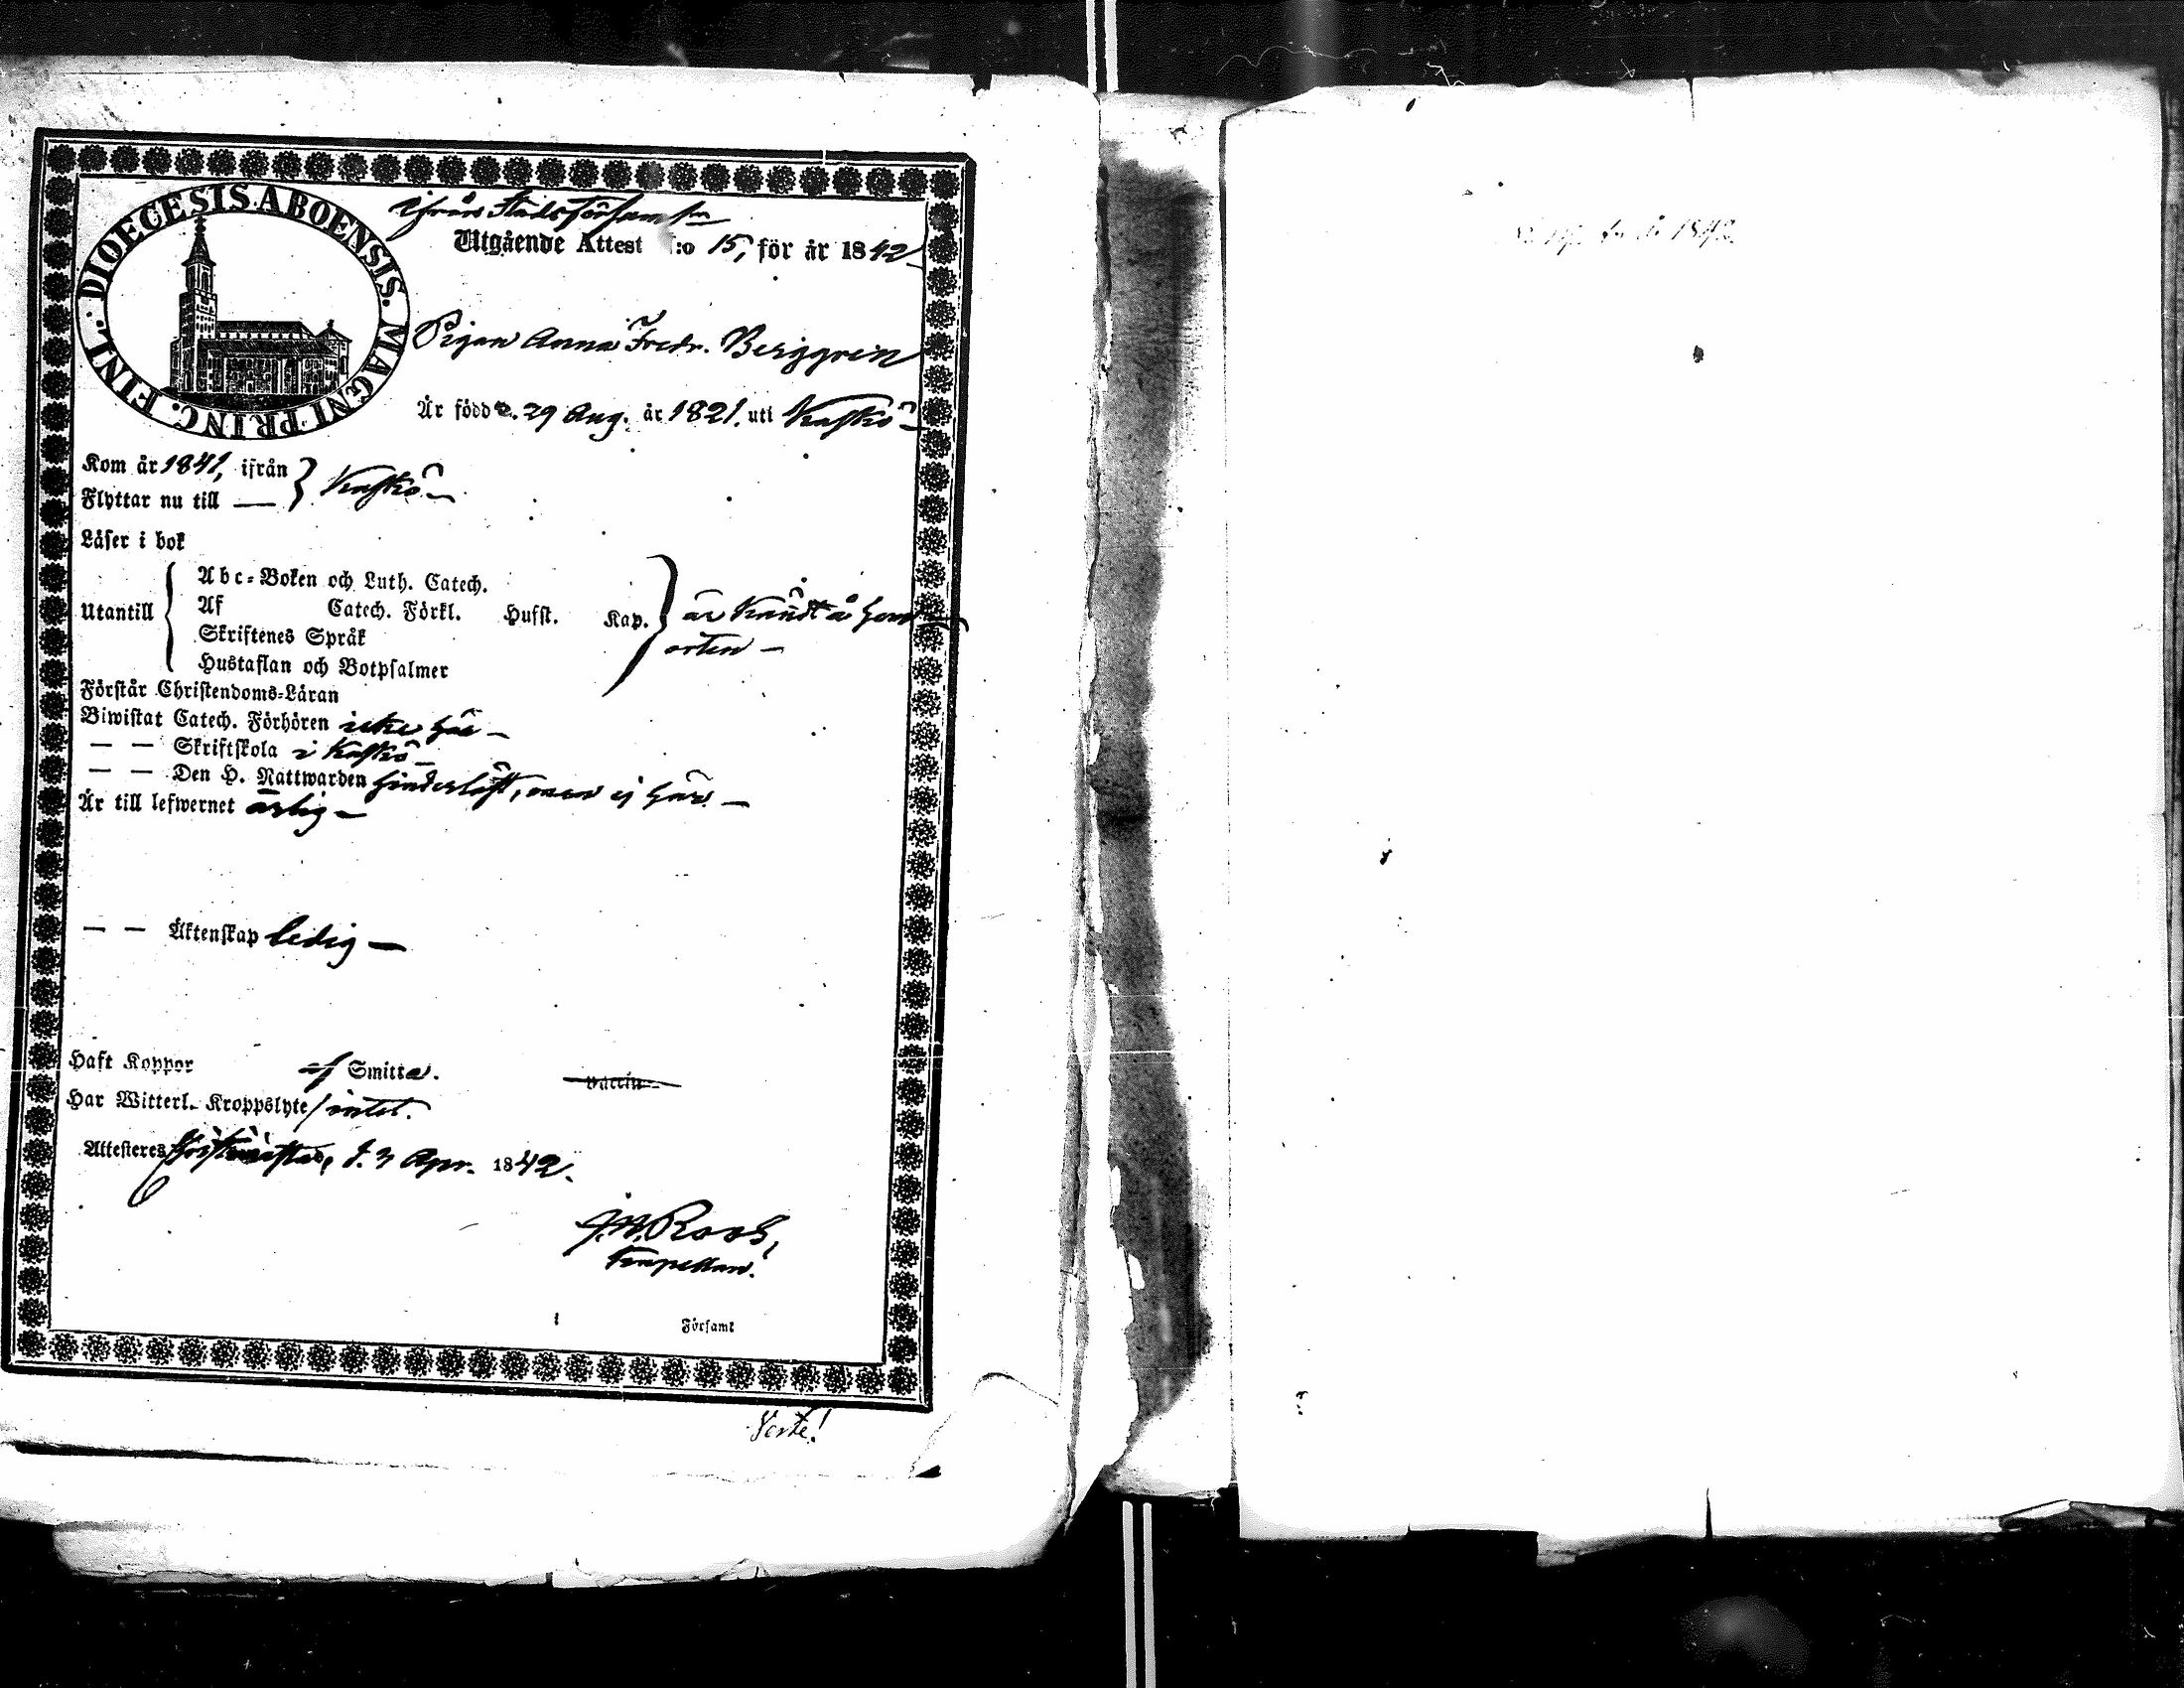 DIOECESIS ABOENSIS. MAGNI PRINC. FINL.
ifrån Stadsförsaml:n
Utgående Attest :o 15, för år 1842
Pigan Anna Fredr. Berggren
År född d. 29 Aug. år 1821. uti Kaskö
Kom år 1841, ifrån } Kaskö
Flyttar nu till —
Läser i bok
Utantill
Abc-Boken och Luth. Catech.
Af Catech. Förkl. Husst. Kap. är kändt å hem
orten —
Skriftenes Språk
Hustaflan och Botpsalmer
Förstår Christendoms-Läran
Biwistat Catech. Förhören icke här —
— — Skriftskola i Kaskö —
— — Den H. Nattwarden hinderlöst, men ej här. —
Är till lefwernet ärlig —
— — Äktenskap ledig —
Haft Koppor af Smitta. Vaccin
Har Witterl. Kroppslyte intet.
Attesteres Christinestad, d. 3 Apr. 1842.
Roos,
Kapellan.
i Församl
Verte!
för år 1842.